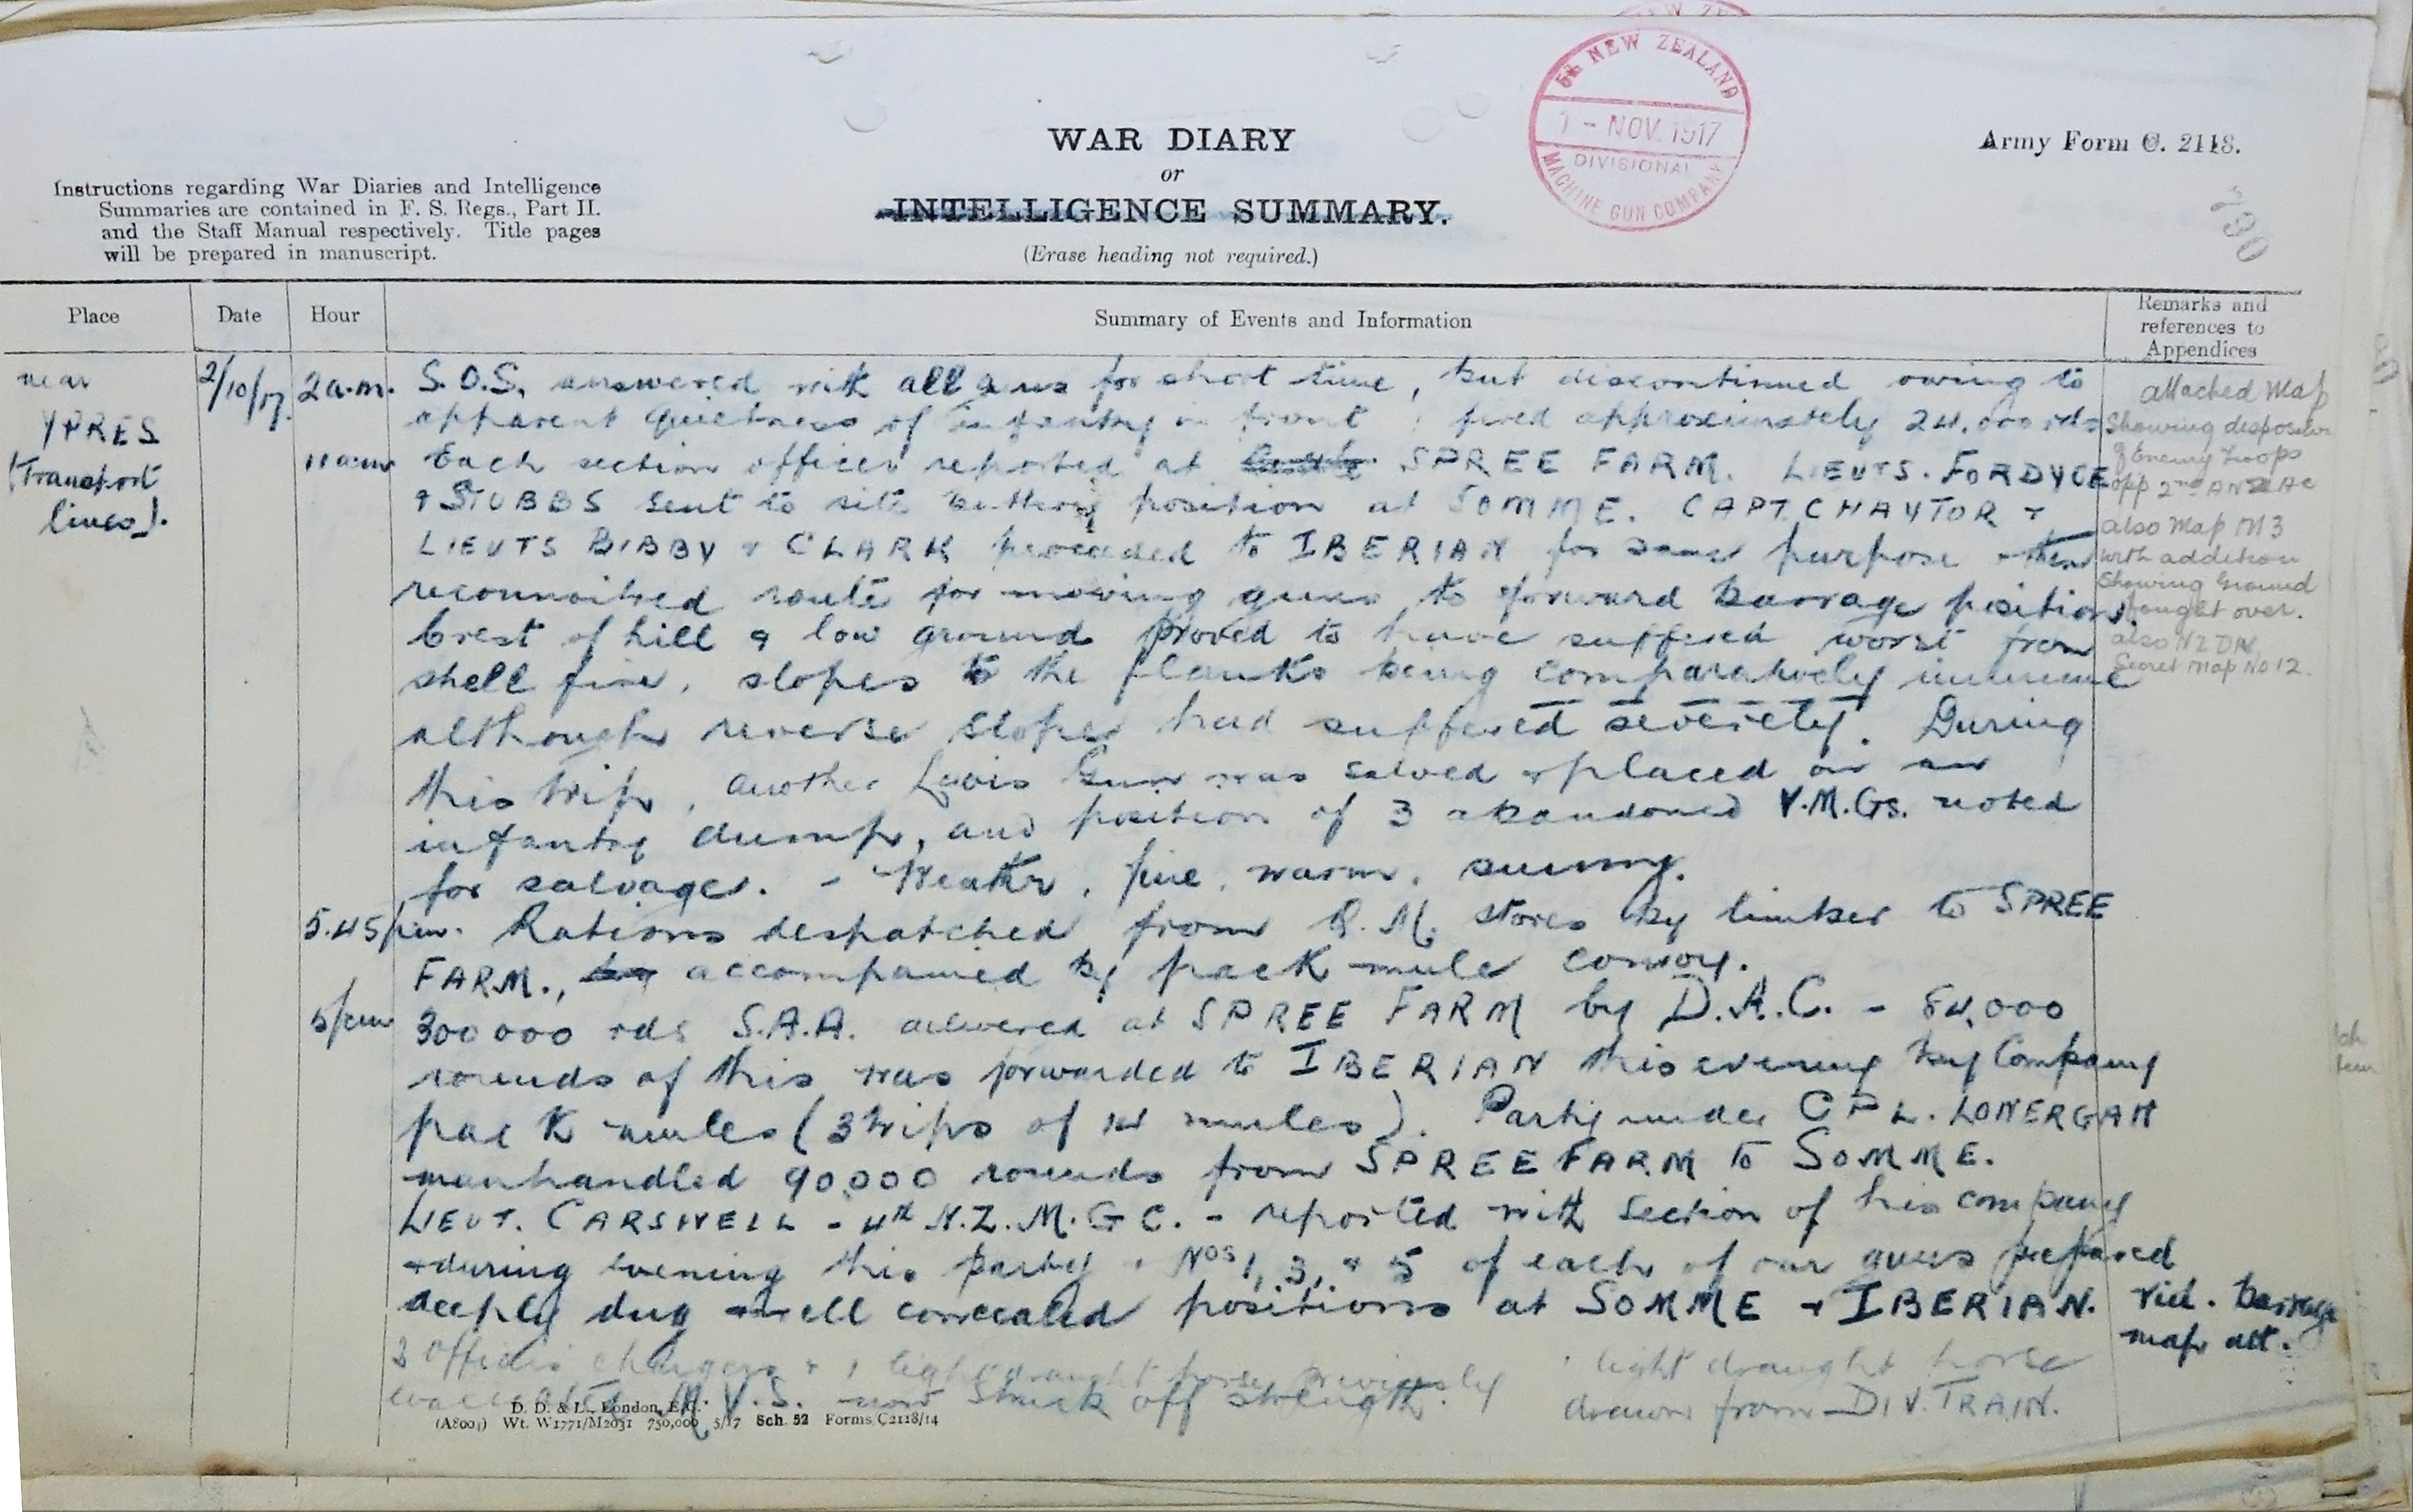 5th NEW ZEALAND
1 - NOV. 1917
DIVISIONAL
MACHINE GUN COMPANY
WAR DIARY
or
INTELLIGENCE SUMMARY.
(Erase heading not required.)
Army Form C. 2118.
Instructions regarding War Diaries and Intelligence
Summaries are contained in F. S. Regs., Part II.
and the Staff Manual respectively. Title pages
will be prepared in manuscript.
790
Place
Date
Hour
Summary of Events and Information
Remarks and
references to
Appendices
near
YPRES
(Transport
lines).
2/10/17.
2 a.m. S.O.S. answered with all guns for short time, but discontinued owing to
apparent quietness of infantry in front; fired approximately 24,000 rds
11 a.m. Each section officer reported at SPREE FARM. LIEUTS. FORDYCE
& STUBBS sent to site battery position at SOMME. CAPT. CHAYTOR +
LIEUTS BIBBY & CLARK proceeded to IBERIAN for same purpose & then
reconnoitred route for moving guns to forward barrage positions.
Crest of hill & low ground proved to have suffered worst from
shell fire, slopes to the flanks being comparatively immune
although reverse slopes had suffered severely. During
this trip, another Lewis Gun was salved & placed on an
infantry dump, and position of 3 abandoned V.M.Gs. noted
for salvage. - Weather, fine, warm, sunny.
5.45 p.m. Rations despatched from Q.M. stores by limber to SPREE
FARM., accompanied by pack mule convoy.
5 p.m. 300 000 rds S.A.A. delivered at SPREE FARM by D.A.C. - 84,000
rounds of this was forwarded to IBERIAN this evening by Company
pack mules (3 trips of 14 mules). Party under CPL. LONERGAN
manhandled 90,000 rounds from SPREE FARM to SOMME.
LIEUT. CARSWELL - 4th N.Z.M.G.C. - reported with section of his company
& during evening this party & Nos 1, 3, & 5 of each of our guns prepared
deeply dug & well concealed positions at SOMME + IBERIAN.
3 Officers chargers & 1 light draught horse previously
evacuated M.V.S. now struck off strength.
1 light draught horse
drawn from DIV. TRAIN.
attached Map
Showing disposition
of Enemy Troops
opp 2nd ANZAC
also Map M3
with addition
Showing Ground
fought over.
also NZ DIV
Secret Map No 12.
vid. barrage
map att.
D. D. & L., London, E.C.
(A8001) Wt. W1771/M2031 750,000 5/17 Sch. 52 Forms/C2118/14